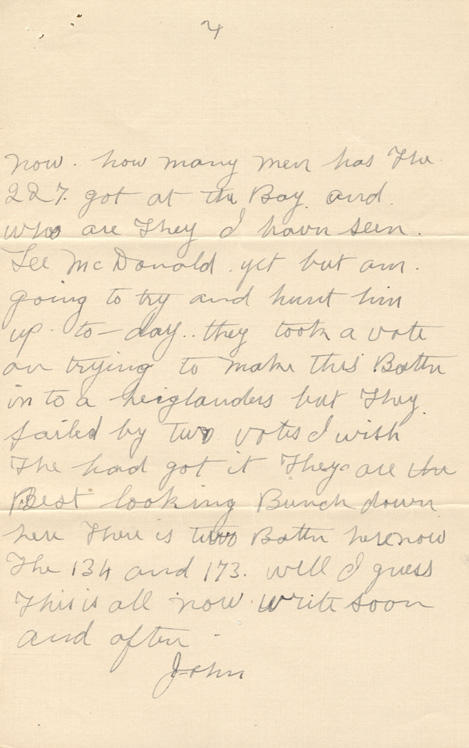 4
now. how many men has The
227. got at the Bay and.
who are They I havn seen.
Lee McDonald. yet but am.
going to try and hunt him
up. to-day.. they took a vote
on trying to make this Battn
in to a heiglanders but They.
failed by two votes I wish
The had got it They are the
Best looking Bunch down
here There is two Battn here now
The 134 and 173. well I guess
This is all now. write soon
and often.
John